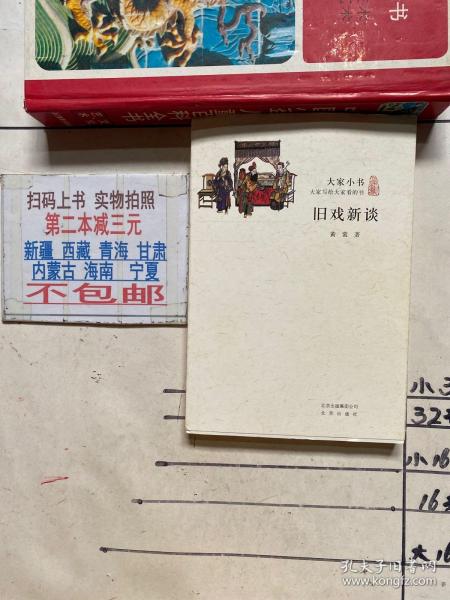 书
扫码上书 实物拍照
第二本减三元
新疆 西藏 青海 甘肃
内蒙古 海南 宁夏
不包邮
大家小书
大家写给大家看的书
旧戏新谈
黄裳 著
北京出版集团公司
北京出版社
小3
32
小16
16
大16
孔夫子旧书网
kongfz.com